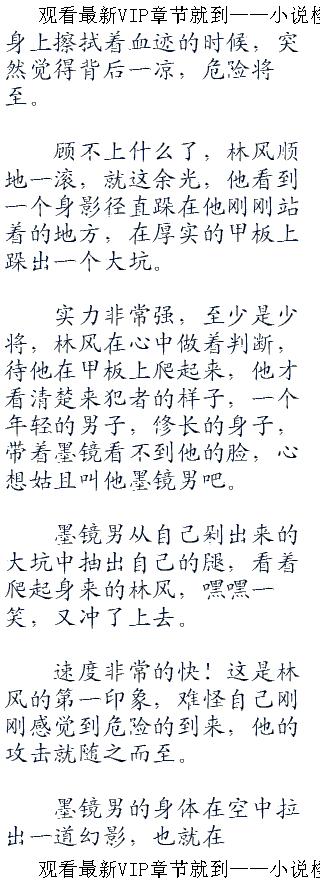 观看最新VIP章节就到——小说
身上擦拭着血迹的时候，突
然觉得背后一凉，危险将
至。
顾不上什么了，林风顺
地一滚，就这余光，他看到
一个身影径直跺在他刚刚站
着的地方，在厚实的甲板上
跺出一个大坑。
实力非常强，至少是少
将，林风在心中做着判断，
待他在甲板上爬起来，他才
看清楚来犯者的样子，一个
年轻的男子，修长的身子，
带着墨镜看不到他的脸，心
想姑且叫他墨镜男吧。
墨镜男从自己剁出来的
大坑中抽出自己的腿，看着
爬起身来的林风，嘿嘿一
笑，又冲了上去。
速度非常的快！这是林
风的第一印象，难怪自己刚
刚感觉到危险的到来，他的
攻击就随之而至。
墨镜男的身体在空中拉
出一道幻影，也就在
观看最新VIP章节就到——小说